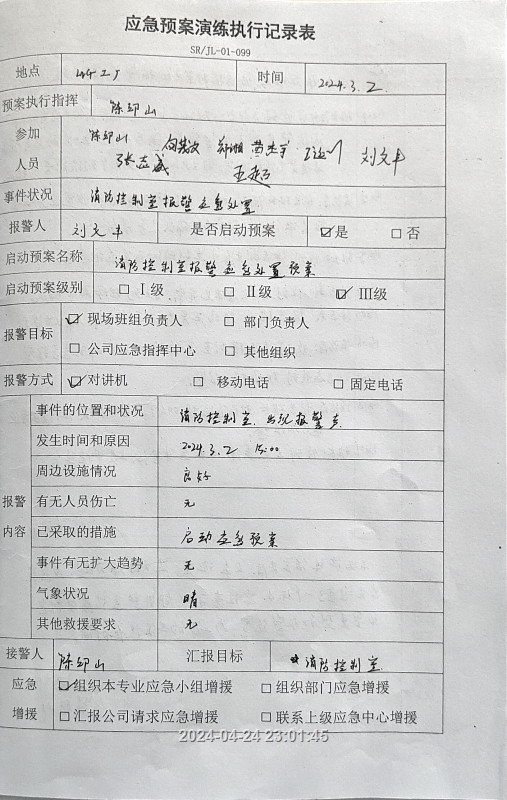 应急预案演练执行记录表
SR/JL-01-099
地点 时间 2024.3.2.
预案执行指挥 陈卯山
参加人员 陈卯山 郑湘 刘文丰
张志威 王超
事件状况 消防控制室报警应急处置
报警人 刘文丰 是否启动预案 ☑是 □否
启动预案名称 消防控制室报警应急处置预案
启动预案级别 □Ⅰ级 □Ⅱ级 ☑Ⅲ级
报警目标 ☑现场班组负责人 □部门负责人
□公司应急指挥中心 □其他组织
报警方式 ☑对讲机 □移动电话 □固定电话
报警内容
事件的位置和状况 消防控制室,出现报警音
发生时间和原因 2024.3.2 15:00
周边设施情况 良好
有无人员伤亡 无
已采取的措施 启动应急预案
事件有无扩大趋势 无
气象状况 晴
其他救援要求 无
接警人 陈卯山 汇报目标 消防控制室
应急增援 ☑组织本专业应急小组增援 □组织部门应急增援
□汇报公司请求应急增援 □联系上级应急中心增援
2024-04-24 23:01:45